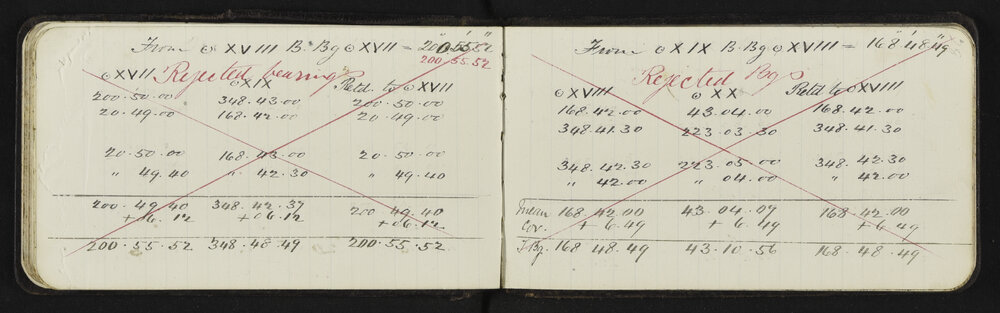 From ⊙ XVIII B. Bg ⊙ XVII = 200° 55' 52"
200. 55. 52
Rejected bearings
⊙ XVII ⊙ XIX Retd. to ⊙ XVII
200. 50. 00 348. 43. 00 200. 50. 00
20. 49. 00 168. 42. 00 20. 49. 00
20. 50. 00 168. 43. 00 20. 50. 00
" 49. 40 " 42. 30 " 49. 40
200. 49. 40 348. 42. 37 200 49. 40
+ 6. 12 + 06. 12 + 06. 12
200. 55. 52 348. 48. 49 200. 55. 52
From ⊙ XIX B. Bg ⊙ XVIII = 168° 48' 49
Rejected Bgs
⊙ XVIII ⊙ XX Retd to ⊙ XVIII
168. 42. 00 43. 04. 00 168. 42. 00
348. 41. 30 223. 03. 30 348. 41. 30
348. 42. 30 223. 05. 00 348. 42. 30
" 42. 00 " 04. 00 " 42. 00
Mean 168. 42. 00 43. 04. 07 168. 42. 00
Cor. + 6. 49 + 6. 49 + 6. 49
T. Bg. 168 48. 49 43. 10. 56 168. 48. 49